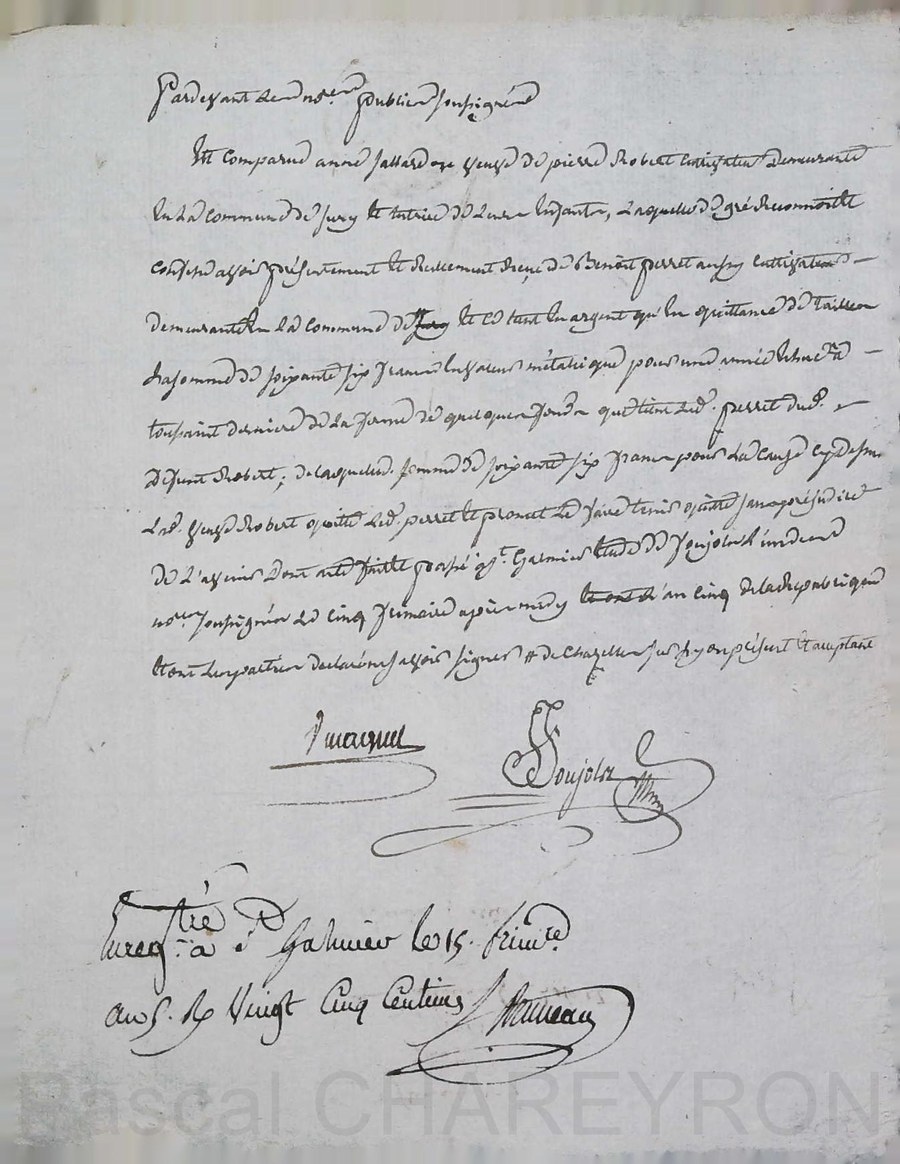 Pardevant le no.re public soussigné
Est comparue veuve de pierre Robert cultivateur demeurante
en la commune de Sury et tutrice de leurs enfants, laquelle de gré reconnoit et
confesse avoir présentement et reellement reçu de Benoit perret aussy cultivateur
demeurant en la commune de Sury et ce tant en argent qu'en quittance de
la somme de soixante six francs en valeur métalique pour une année échue a
toussaint derniere de la ferme de quelques fonds que tient led. perret dud.
défunt Robert; de laquelle somme de soixante six francs pour la cause cy dessus
lad. veuve Robert quitte led. perret et promet le faire tenir quitte sans préjudice
de l'avenir dont acte fait et passé a St. Galmier etude de Soujolx l'un des
no.res soussignés le cinq frimaire apres midy l'an cinq de la république
et ont les parties déclaré ne savoir signer # de Chazelles sur Lyon présent et acceptant
Soujolx
Enreg.tré à St Galmier le 15. frim.re
an 5. R vingt cinq centimes
Pascal CHAREYRON